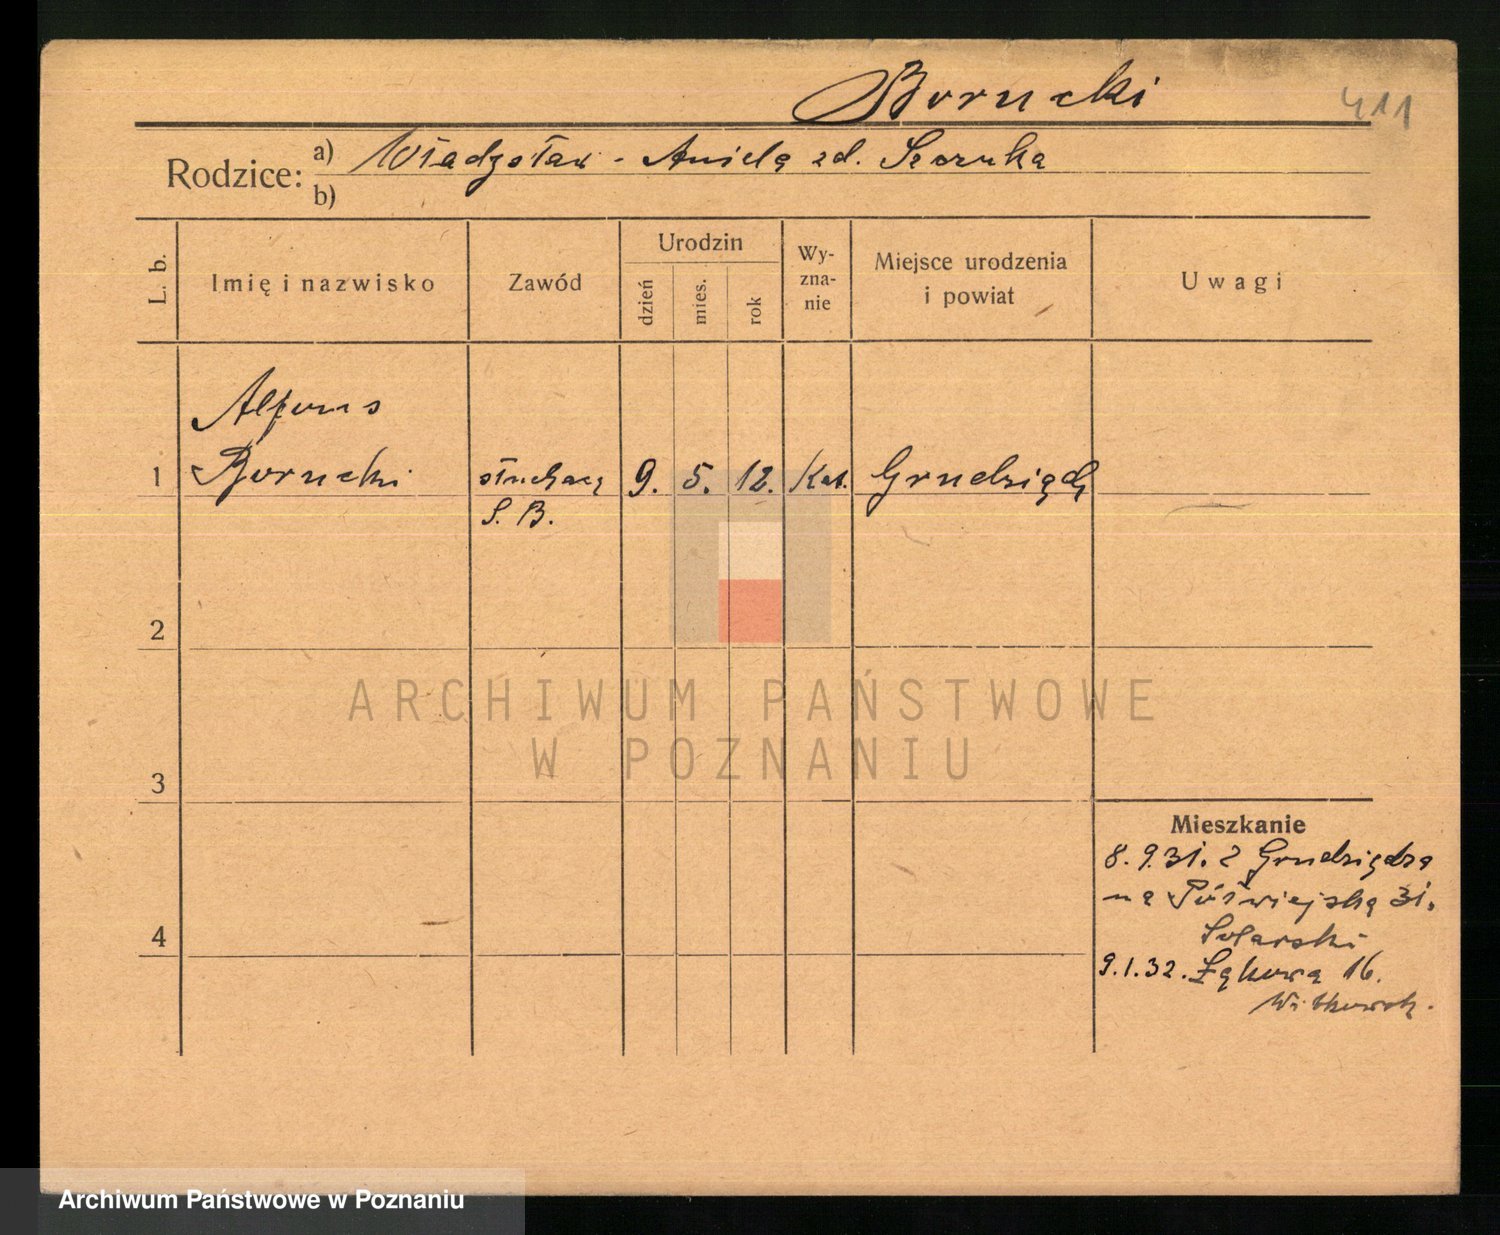 Borucki
411
Rodzice: a) Władysław - Aniela zd. Szczuka
b)
L. b.
Imię i nazwisko
Zawód
Urodzin
dzień
mies.
rok
Wy-
zna-
nie
Miejsce urodzenia
i powiat
Uwagi
Alfons
1 Borucki słuchacz 9. 5. 12. Kat. Grudziądz
S. B.
2
3
4
Mieszkanie
8. 9. 31. z Grudziądza
na Półwiejską 31.
Solarski
9. 1. 32. Łąkowa 16.
Witkowsk.
ARCHIWUM PAŃSTWOWE
W POZNANIU
Archiwum Państwowe w Poznaniu